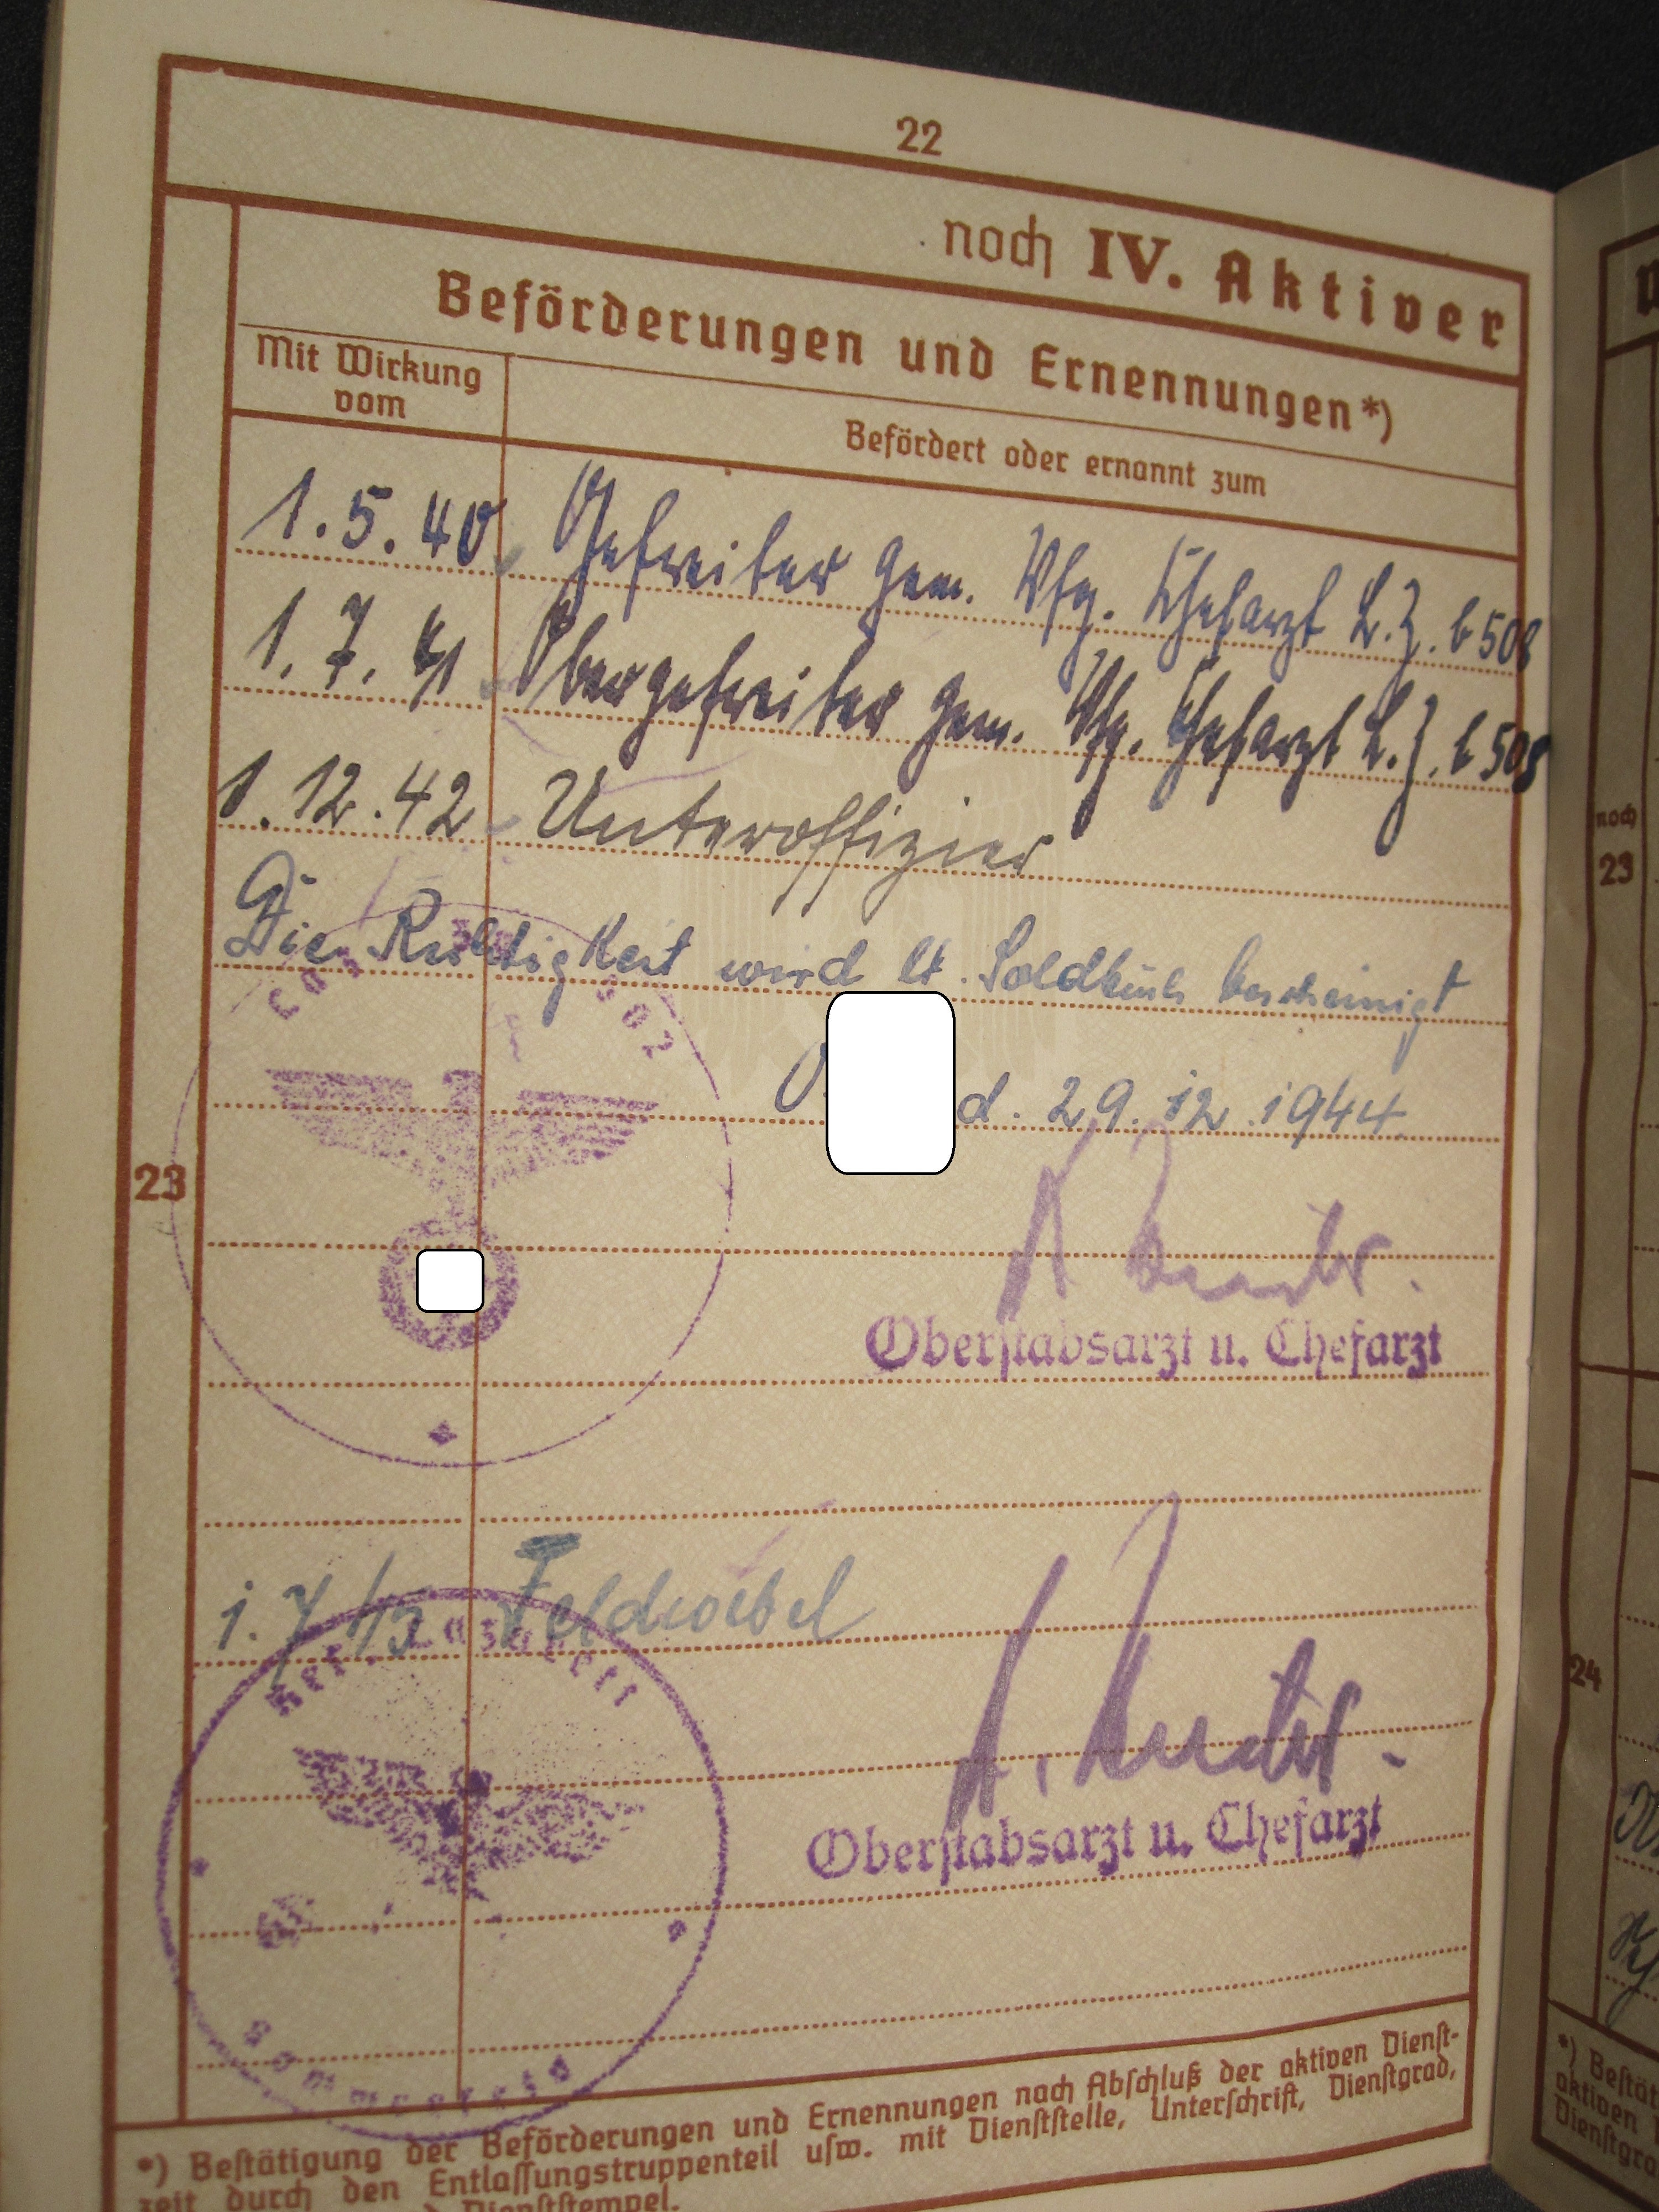 22
noch IV. Aktiver
Beförderungen und Ernennungen*)
Mit Wirkung vom
Befördert oder ernannt zum
1.5.40 Gefreiter gem. Vfg. Chefarzt L.Z. b 508
1.7.41 Obergefreiter gem. Vfg. Chefarzt L.Z. b 508
1.12.42 Unteroffizier
Die Richtigkeit wird lt. Soldbuch bescheinigt
d. 29.12.1944
23
Oberstabsarzt u. Chefarzt
Feldwebel
Res. Lazarett
Oberstabsarzt u. Chefarzt
*) Bestätigung der Beförderungen und Ernennungen nach Abschluß der aktiven Dienst-
zeit durch den Entlassungstruppenteil usw. mit Dienststelle, Unterschrift, Dienstgrad,
Dienststempel.
noch
23
24